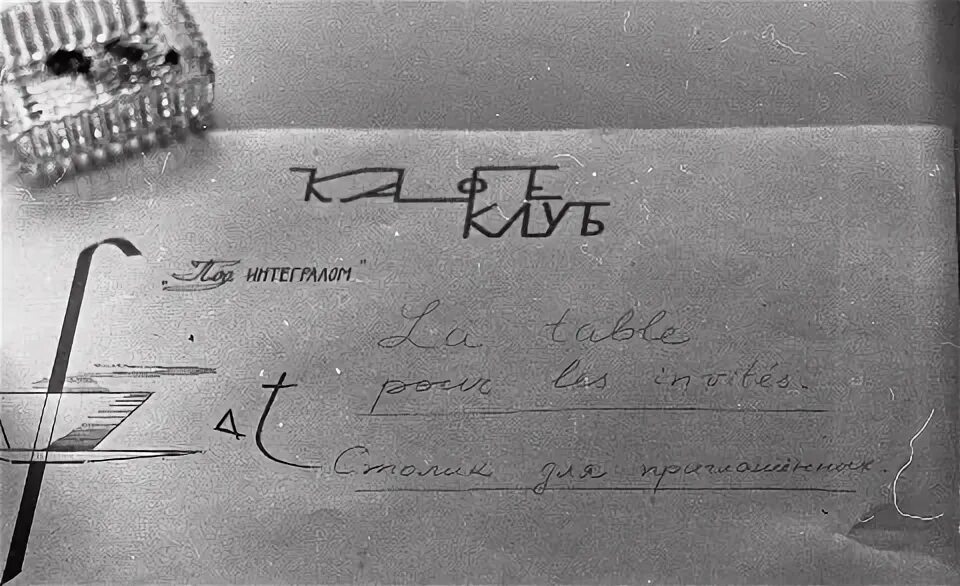 КАФЕ
КЛУБ
„Под ИНТЕГРАЛОМ"
La table
pour les invités.
Δt
Столик для приглашённых.